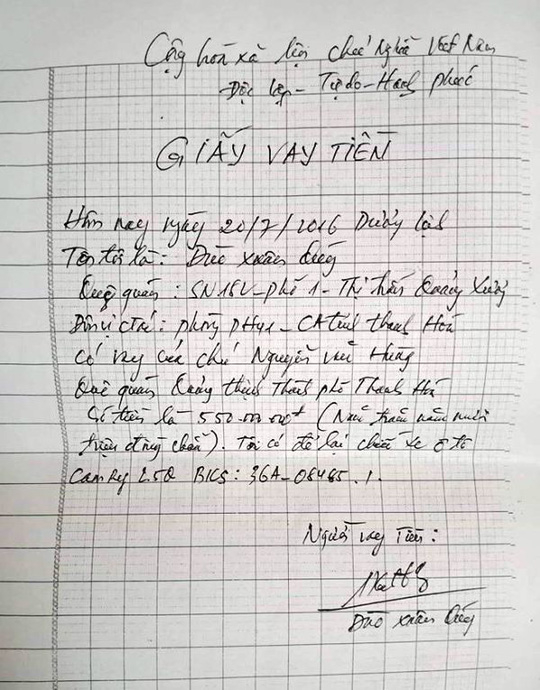 Cộng hoà xã hội chủ nghĩa Việt Nam
Độc lập - Tự do - Hạnh phúc
GIẤY VAY TIỀN
Hôm nay ngày 20/7/2016 Dương lịch
Tên tôi là: Đào Xuân
Quê quán: SN 16V - phố 1 - Thị trấn Quảng Xương
Đơn vị c.tác: phòng PH41 - CA tỉnh Thanh Hoá
Có vay của chú Nguyễn Hùng
Quê quán Quảng Thịnh Thành phố Thanh Hoá
Số tiền là 550.000.000đ (Năm trăm năm mươi
triệu đồng chẵn). Tôi có để lại chiếc xe ô tô
Camry 2.5Q BKS: 36A-08465.
Người vay tiền:
Đào Xuân